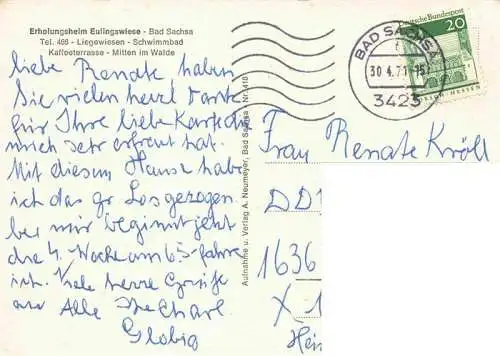 Erholungsheim Eulingswiese - Bad Sachsa
Tel. 466 - Liegewiesen - Schwimmbad
Kaffeeterrasse - Mitten im Walde
liebe Renate haben
Sie vielen herzl Dank
für Ihre liebe Karte
mich sehr erfreut hat.
Mit diesem Hause habe
ich das gr Los gezogen
bei mir beginnt jetzt
die 4. Woche am 6.5 fahre
ich. Viele Grüße
an Alle Ihe Charl.
Globig
Aufnahme u. Verlag A. Neumeyer, Bad Sachsa - Nr. 410
BAD SACHSA
30.4.71-15
3423
Deutsche Bundespost
20
HESSEN
Frau Renate Kröll
DD
1636
X 1
Hein